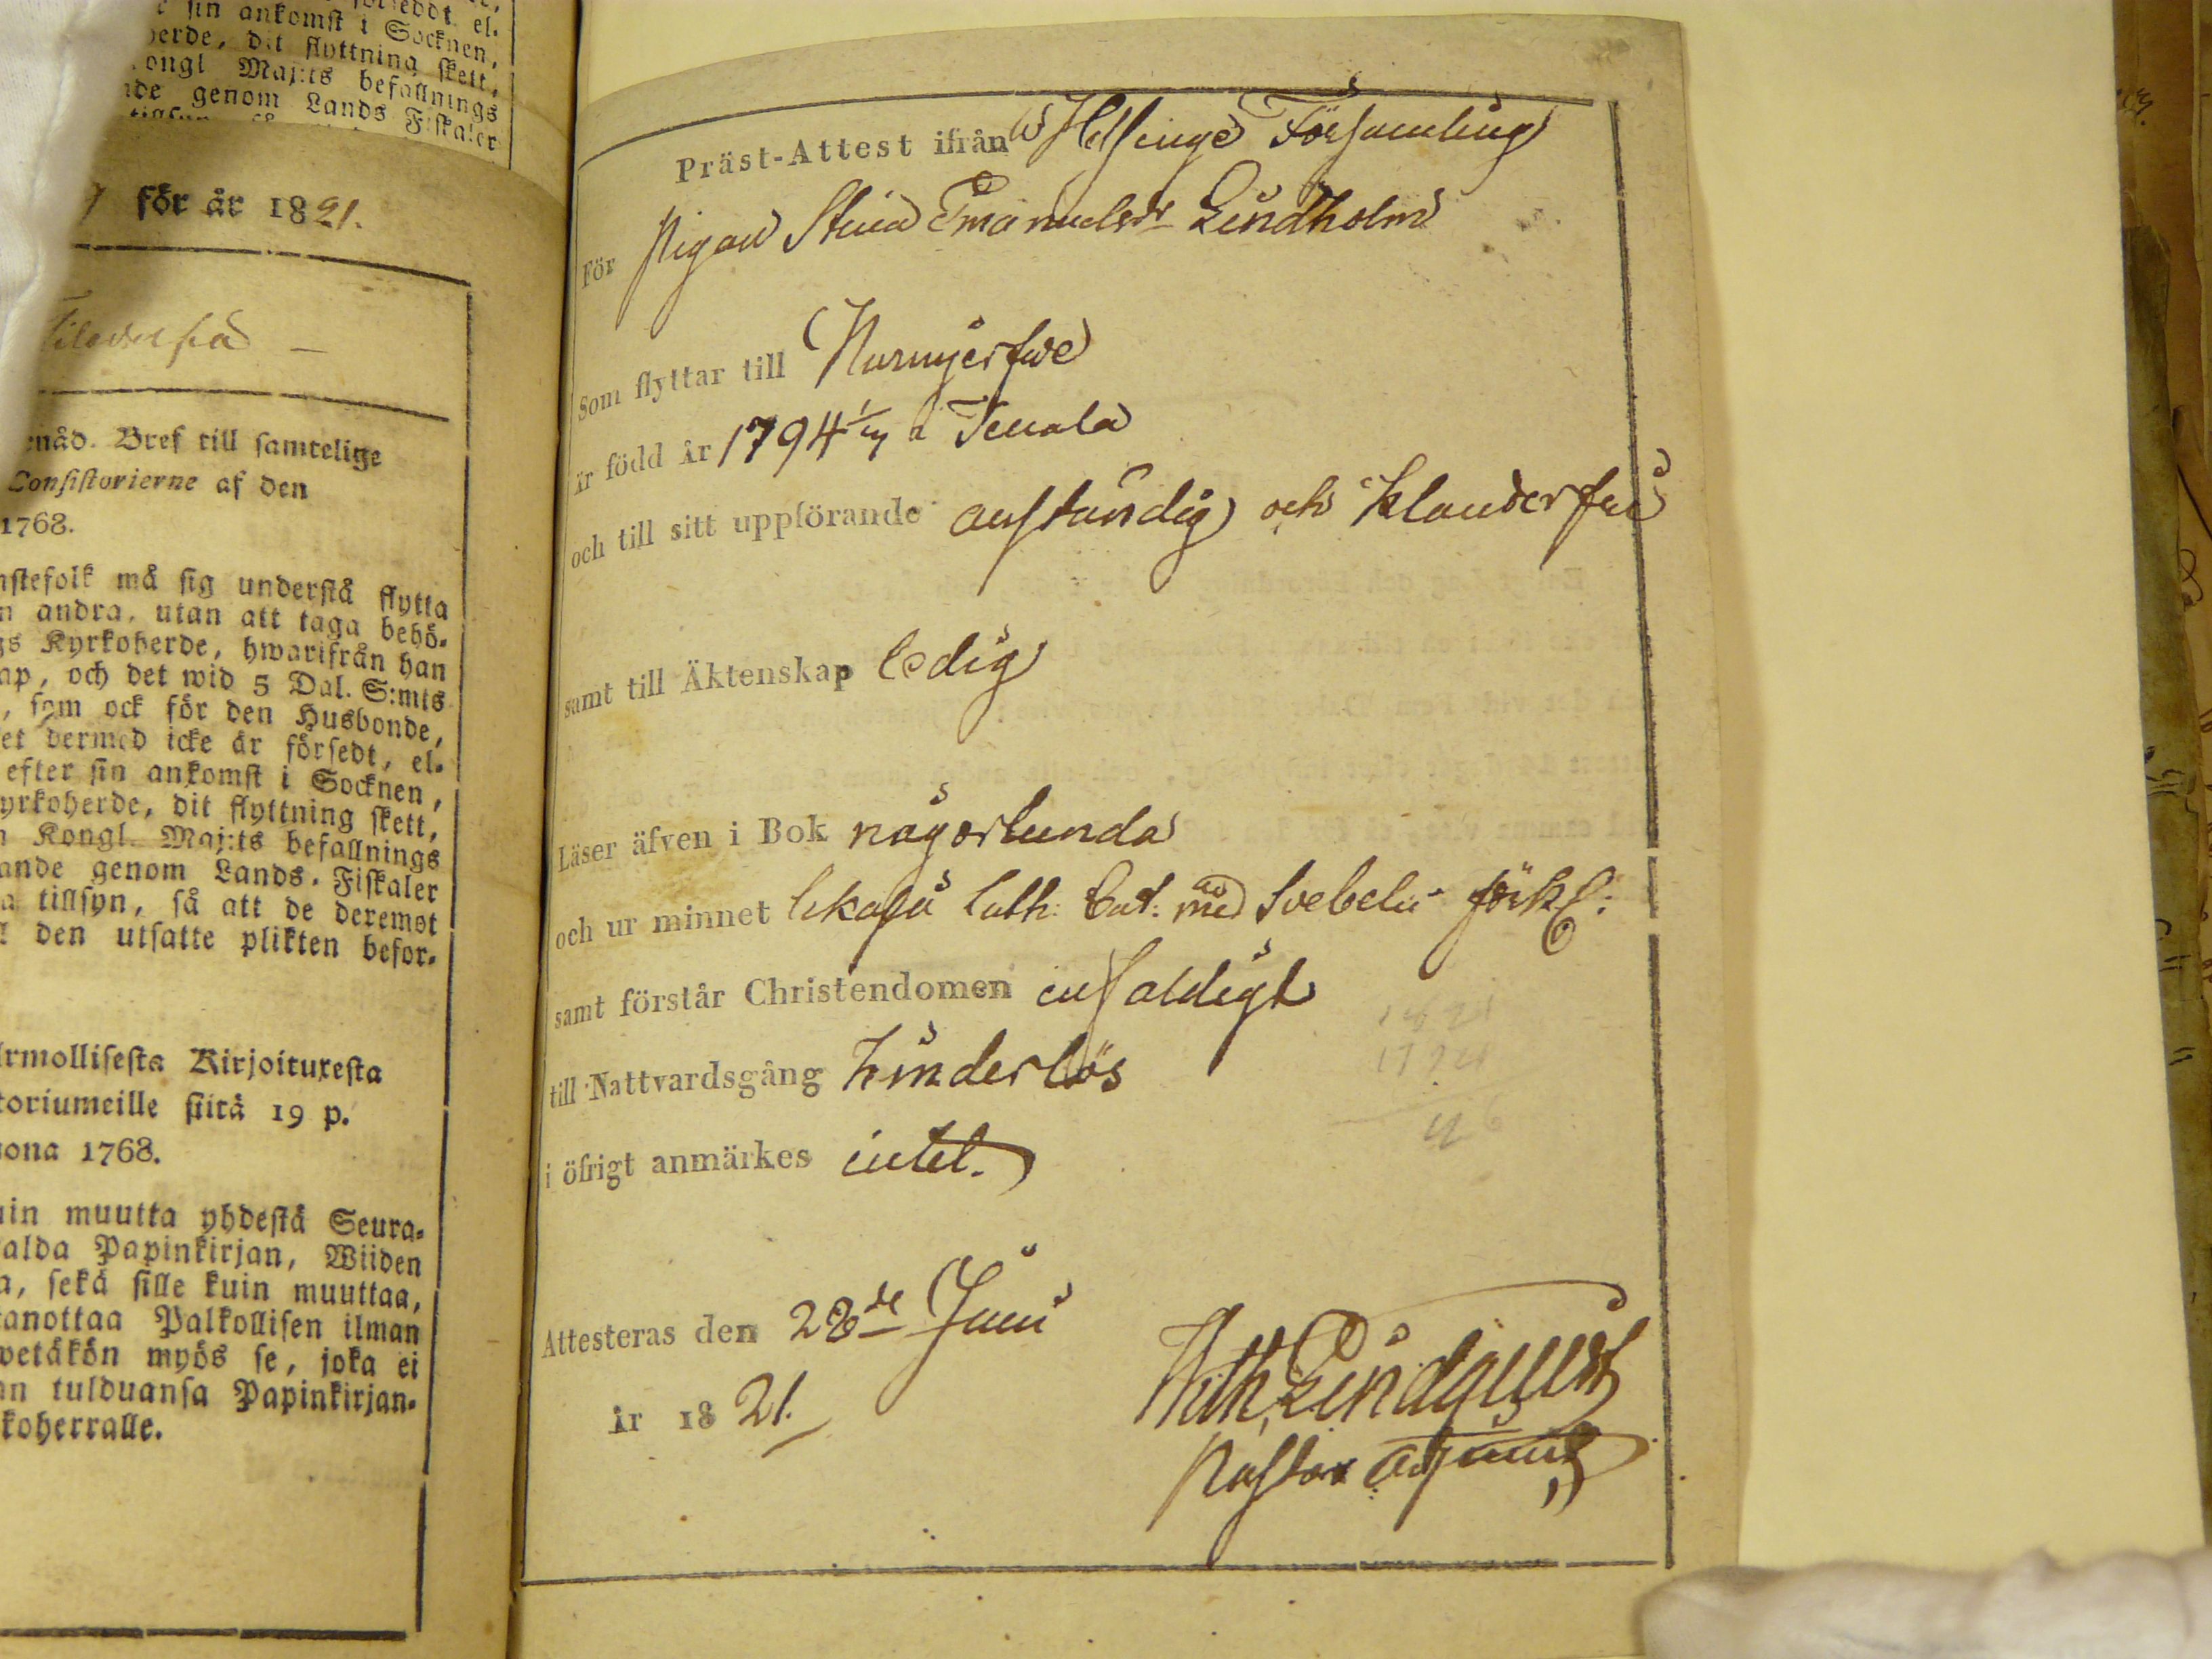 sin ankomst i Socknen,
dit flyttning skett,
Maj:ts befallnings
genom Lands Fiskaler
för år 1821.
Bref till samtelige
Consistorierne af den
1768.
må sig understå flytta
andra, utan att taga behö-
Kyrkoherde, hwarifrån han
och det wid 5 Dal. S:mts
, som ock för den Husbonde,
dermed icke är försedt, el-
efter sin ankomst i Socknen,
dit flyttning skett,
Kongl. Maj:ts befallnings
genom Lands-Fiskaler
tillsyn, så att de deremot
den utsatte plikten befor-
Kirjoituxesta
siitä 19 p.
1768.
muutta yhdestä Seura-
Papinkirjan, Wiiden
sekä sille kuin muuttaa,
Palkollisen ilman
myös se, joka ei
tulduansa Papinkirjan-
Präst-Attest ifrån Helsinge Församling
För Pigan Stina Emanuelsdr Lindholm
Som flyttar till Nurmijerfwe
är född år 1794 i Tenala
och till sitt uppförande anständig och klanderfri
samt till Äktenskap ledig
Läser äfven i Bok någorlunda
och ur minnet Luth: Cat: med Svebelii förkl:
samt förstår Christendomen enfaldigt
till Nattvardsgång hinderlös
i öfrigt anmärkes intet.
Attesteras den 28de Juni
år 1821.
Wilh, Lindqvist
Pastors Adjunct